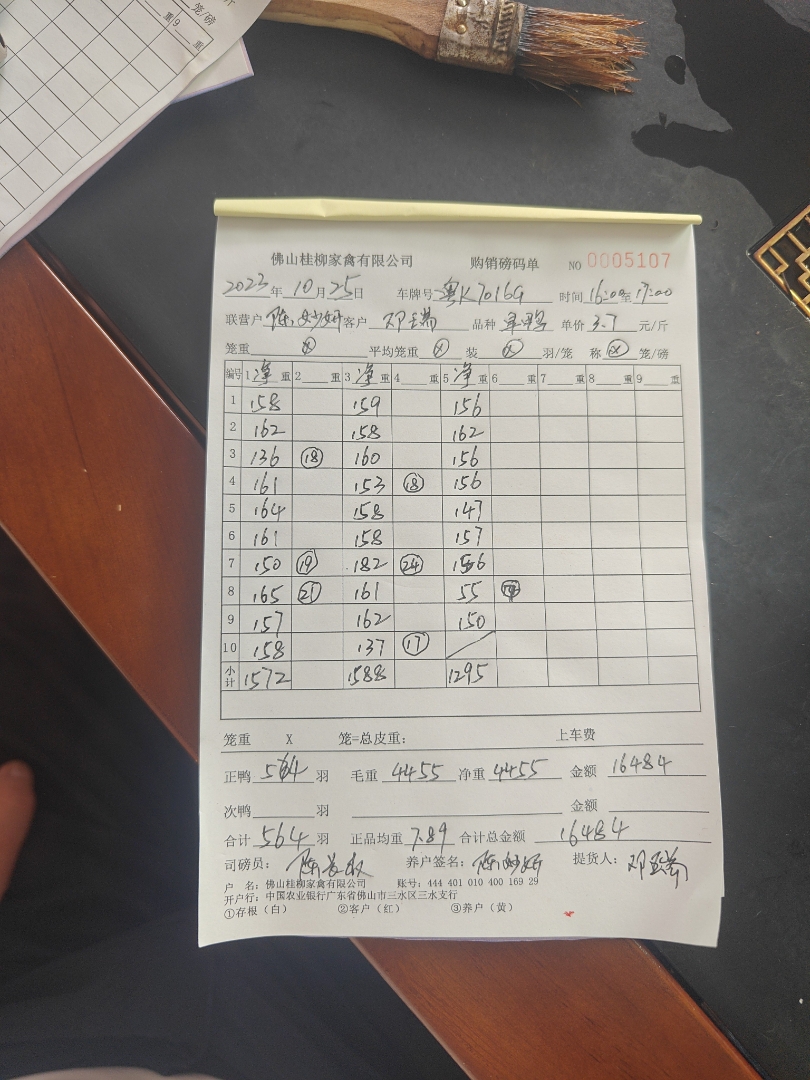 笼/磅
重 9 重
佛山桂柳家禽有限公司 购销磅码单 NO 0005107
2023年 10月25日 车牌号 粤K7016G 时间 16:00至17:00
联营户 陈妙妍 客户 邓孟嵩 品种 单价 3.7 元/斤
笼重 ⊗ 平均笼重 ⊗ 装 ⊗ 羽/笼 称 ⊗ 笼/磅
编号 1 净 重 2 重 3 净 重 4 重 5 净 重 6 重 7 重 8 重 9 重
1 158 159 156
2 162 158 162
3 136 ⑱ 160 156
4 161 153 ⑱ 156
5 164 158 147
6 161 158 157
7 150 ⑲ 182 ㉔ 156
8 165 ㉑ 161 55
9 157 162 150
10 158 137 ⑰ /
小计 1572 1588 1295
笼重 X 笼=总皮重: 上车费
正鸭 564 羽 毛重 4455 净重 4455 金额 16484
次鸭 羽 金额
合计 564 羽 正品均重 7.89 合计总金额 16484
司磅员: 养户签名: 陈妙妍 提货人:
户 名: 佛山桂柳家禽有限公司 账号: 444 401 010 400 169 29
开户行: 中国农业银行广东省佛山市三水区三水支行
①存根(白) ②客户(红) ③养户(黄)